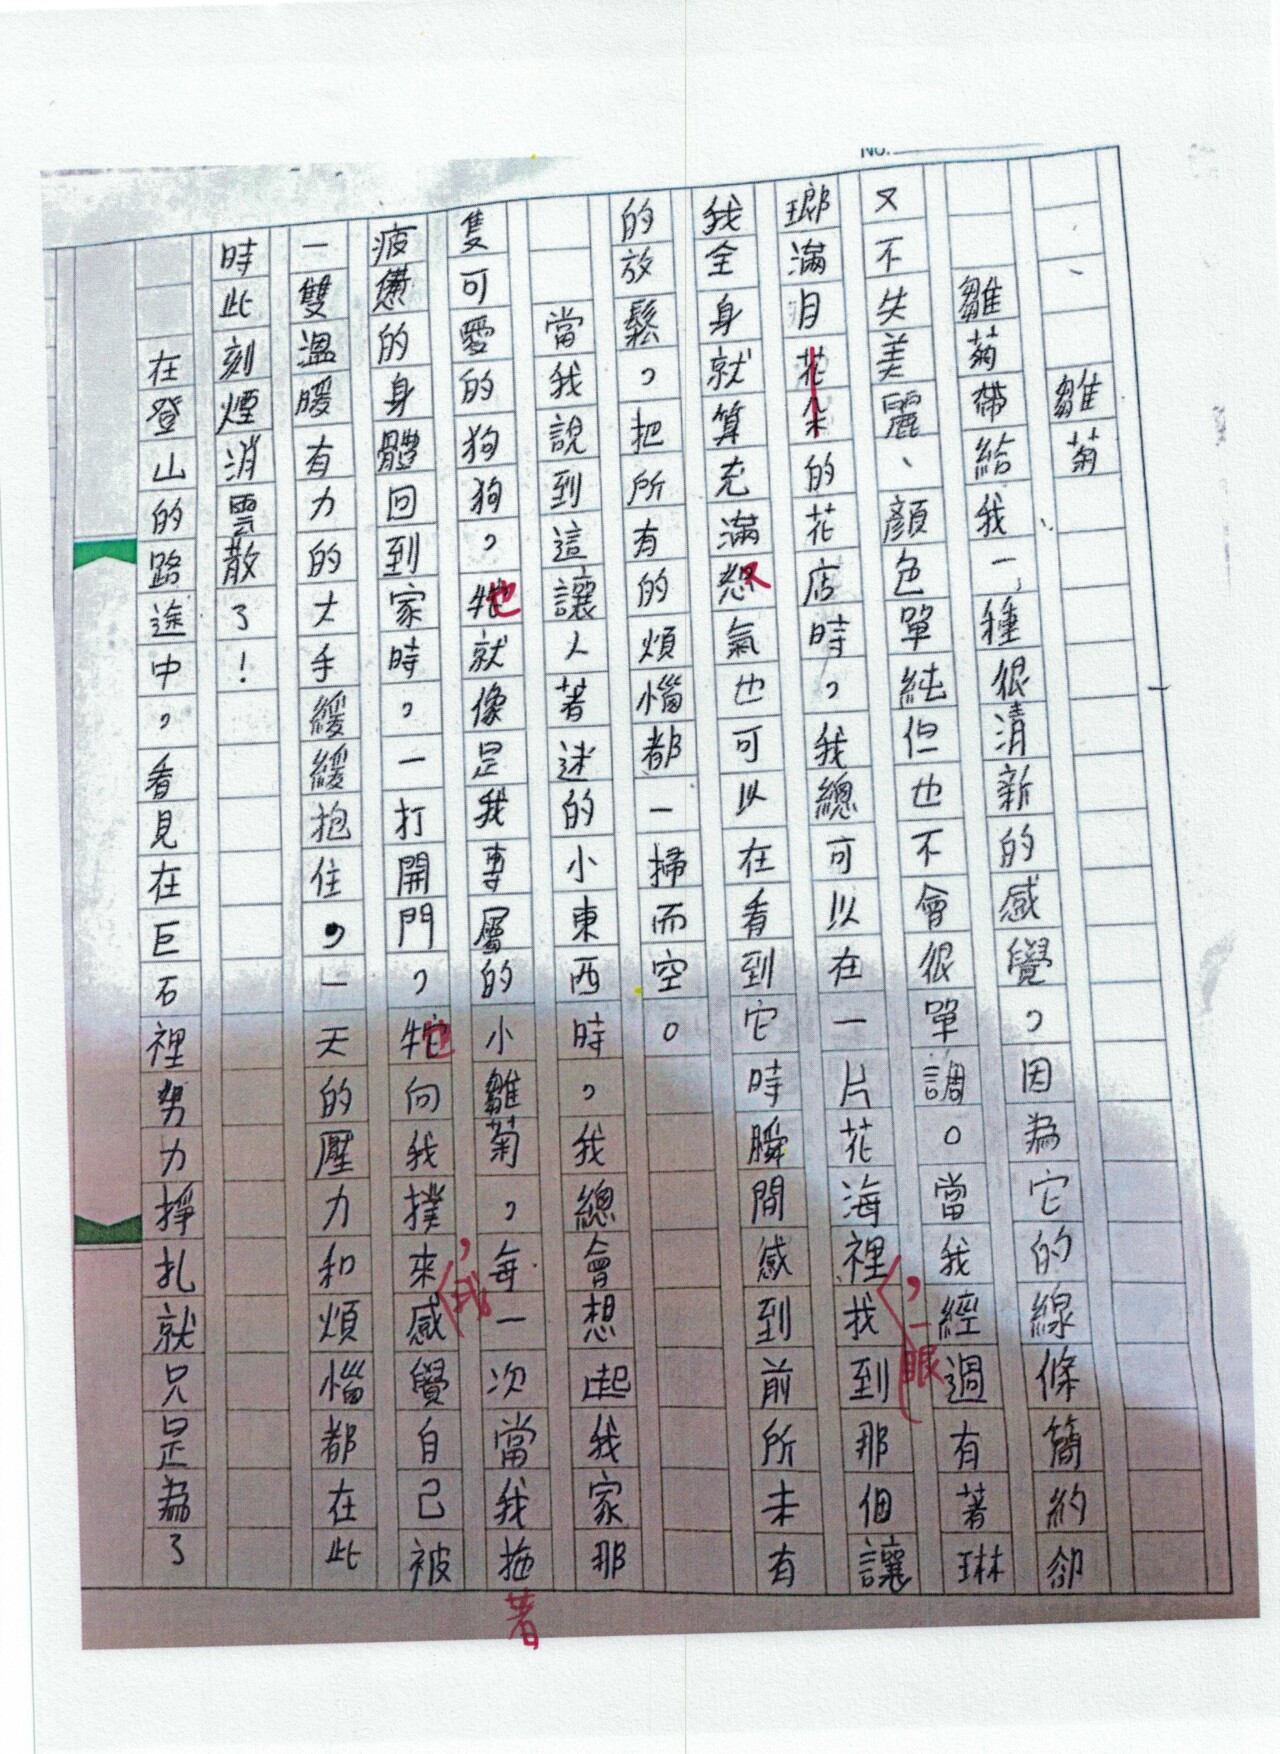 No.
、雛菊
雛菊帶給我一種很清新的感覺,因為它的線條簡約卻
又不失美麗、顏色單純但也不會很單調。當我經過有著琳
瑯滿目花朵的花店時,我總可以在一片花海裡找到那個讓
,一眼
我全身就算充滿怒氣也可以在看到它時瞬間感到前所未有
的放鬆,把所有的煩惱都一掃而空。
當我說到這讓人著迷的小東西時,我總會想起我家那
隻可愛的狗狗,牠就像是我專屬的小雛菊,每一次當我拖
著
疲憊的身體回到家時,一打開門,牠向我撲來感覺自己被
,我
一雙溫暖有力的大手緩緩抱住,一天的壓力和煩惱都在此
時此刻煙消雲散了!
在登山的路途中,看見在巨石裡努力掙扎就只是為了